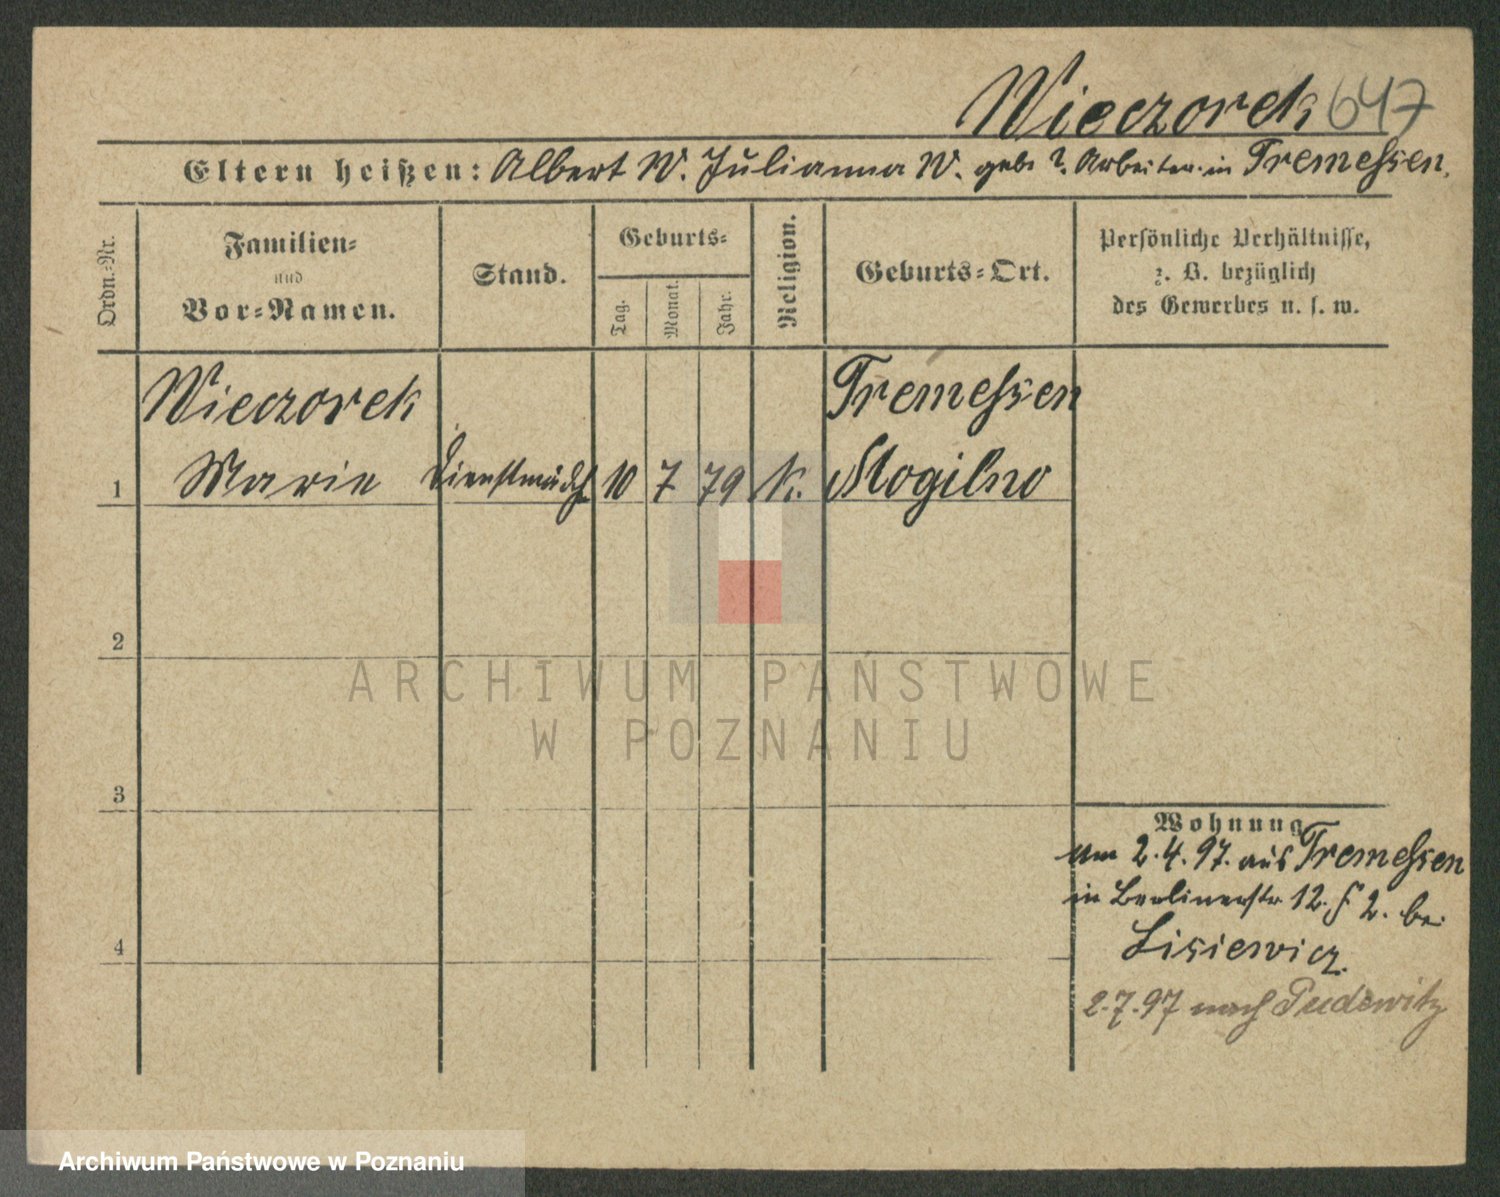 Wieczorek 647
Eltern heißen: Albert W. Julianna W. geb. ?. Arbeiter in Tremessen.
Ordn.-Nr.
Familien-
und
Vor-Namen.
Stand.
Geburts-
Tag.
Monat.
Jahr.
Religion.
Geburts-Ort.
Persönliche Verhältnisse,
z. B. bezüglich
des Gewerbes u. s. w.
Wieczorek Tremessen
1 Marie Dienstmädch 10 7 79 K. Mogilno
2
ARCHIWUM PAŃSTWOWE
W POZNANIU
3
Wohnung
am 2.4.97. aus Tremessen
in Berlinerstr 12. 2. bei
4
Lisiewicz.
2.7.97 nach Pudewitz
Archiwum Państwowe w Poznaniu